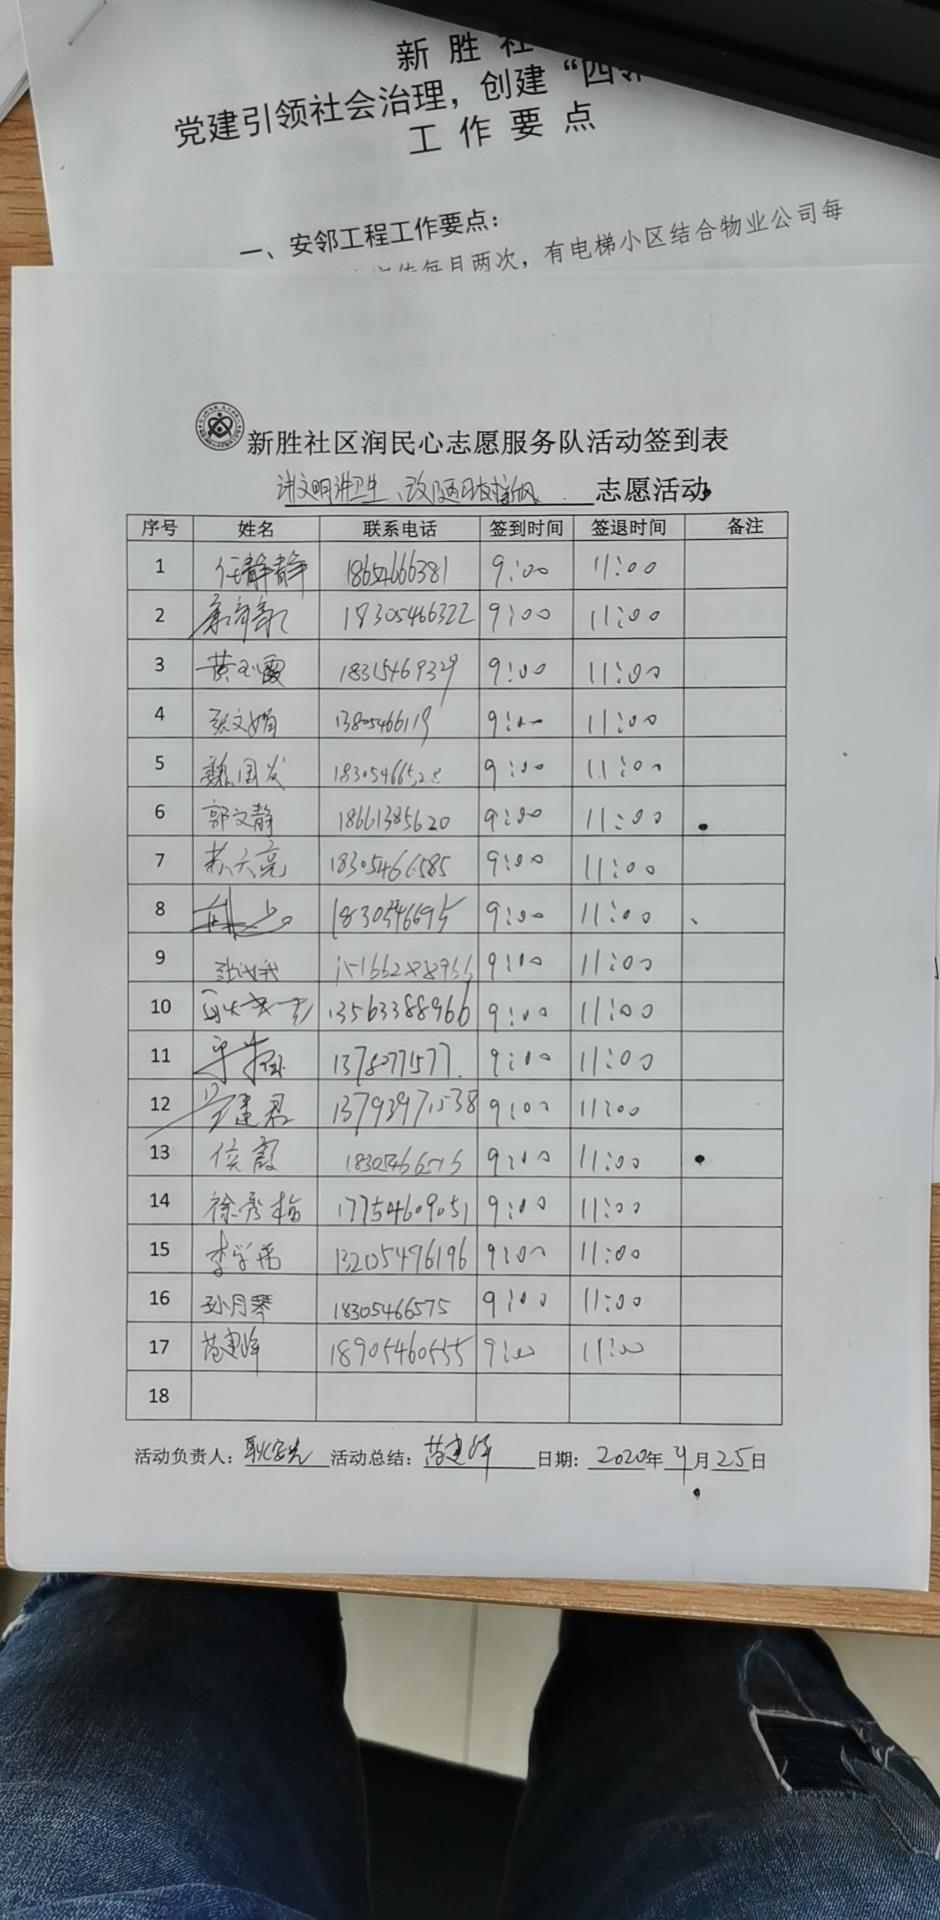 新胜社
党建引领社会治理，创建“四邻
工作要点
一、安邻工程工作要点：
每月两次，有电梯小区结合物业公司每
新胜社区润民心志愿服务队活动签到表
讲文明讲卫生、改陋习树新风 志愿活动
序号 姓名 联系电话 签到时间 签退时间 备注
1 任静静 18654666381 9:00 11:00
2 18305466322 9:00 11:00
3 黄玉霞 18315469329 9:00 11:00
4 张文娟 13805466119 9:00 11:00
5 魏国发 9:00 11:00
6 郭文静 18661385620 9:00 11:00
7 苏天亮 18305466585 9:00 11:00
8 1830546695 9:00 11:00
9 9:00 11:00
10 13563388966 9:00 11:00
11 1378077577 9:00 11:00
12 建君 13793971538 9:00 11:00
13 侯霞 18305466515 9:00 11:00
14 徐秀梅 17754609051 9:00 11:00
15 李学 13205496196 9:00 11:00
16 孙月琴 18305466575 9:00 11:00
17 范建峰 18905460555 9:00 11:00
18
活动负责人： 活动总结：范建峰 日期：2020年4月25日